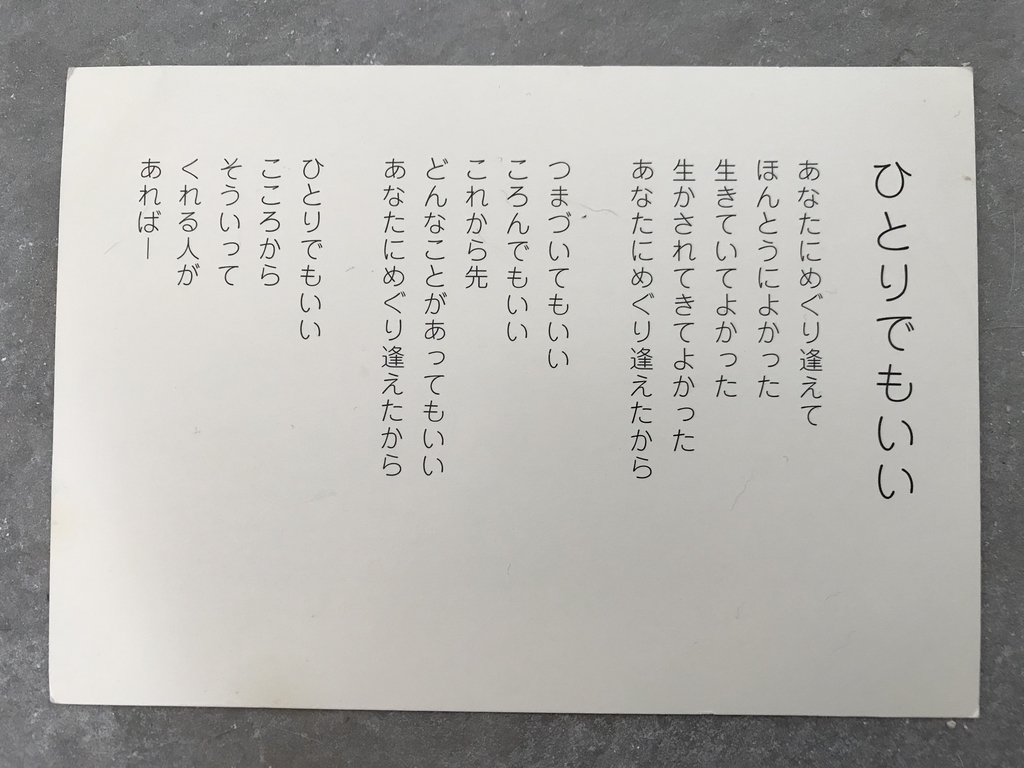 ひとりでもいい
あなたにめぐり逢えて
ほんとうによかった
生きていてよかった
生かされてきてよかった
あなたにめぐり逢えたから
つまづいてもいい
ころんでもいい
これから先
どんなことがあってもいい
あなたにめぐり逢えたから
ひとりでもいい
こころから
そういって
くれる人が
あれば―